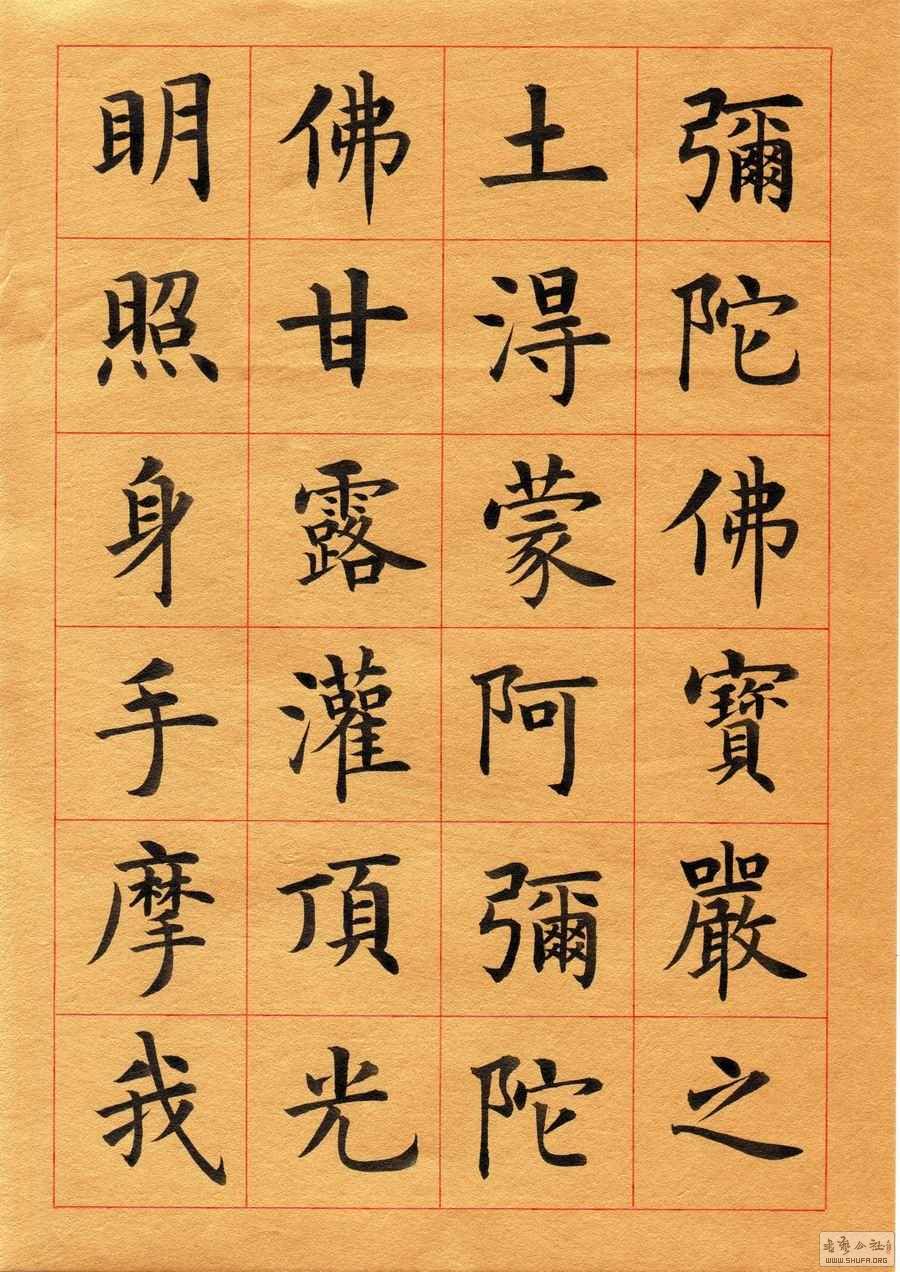 彌陀佛寶嚴之
土得蒙阿彌陀
佛甘露灌頂光
明照身手摩我
WWW.SHUFA.ORG